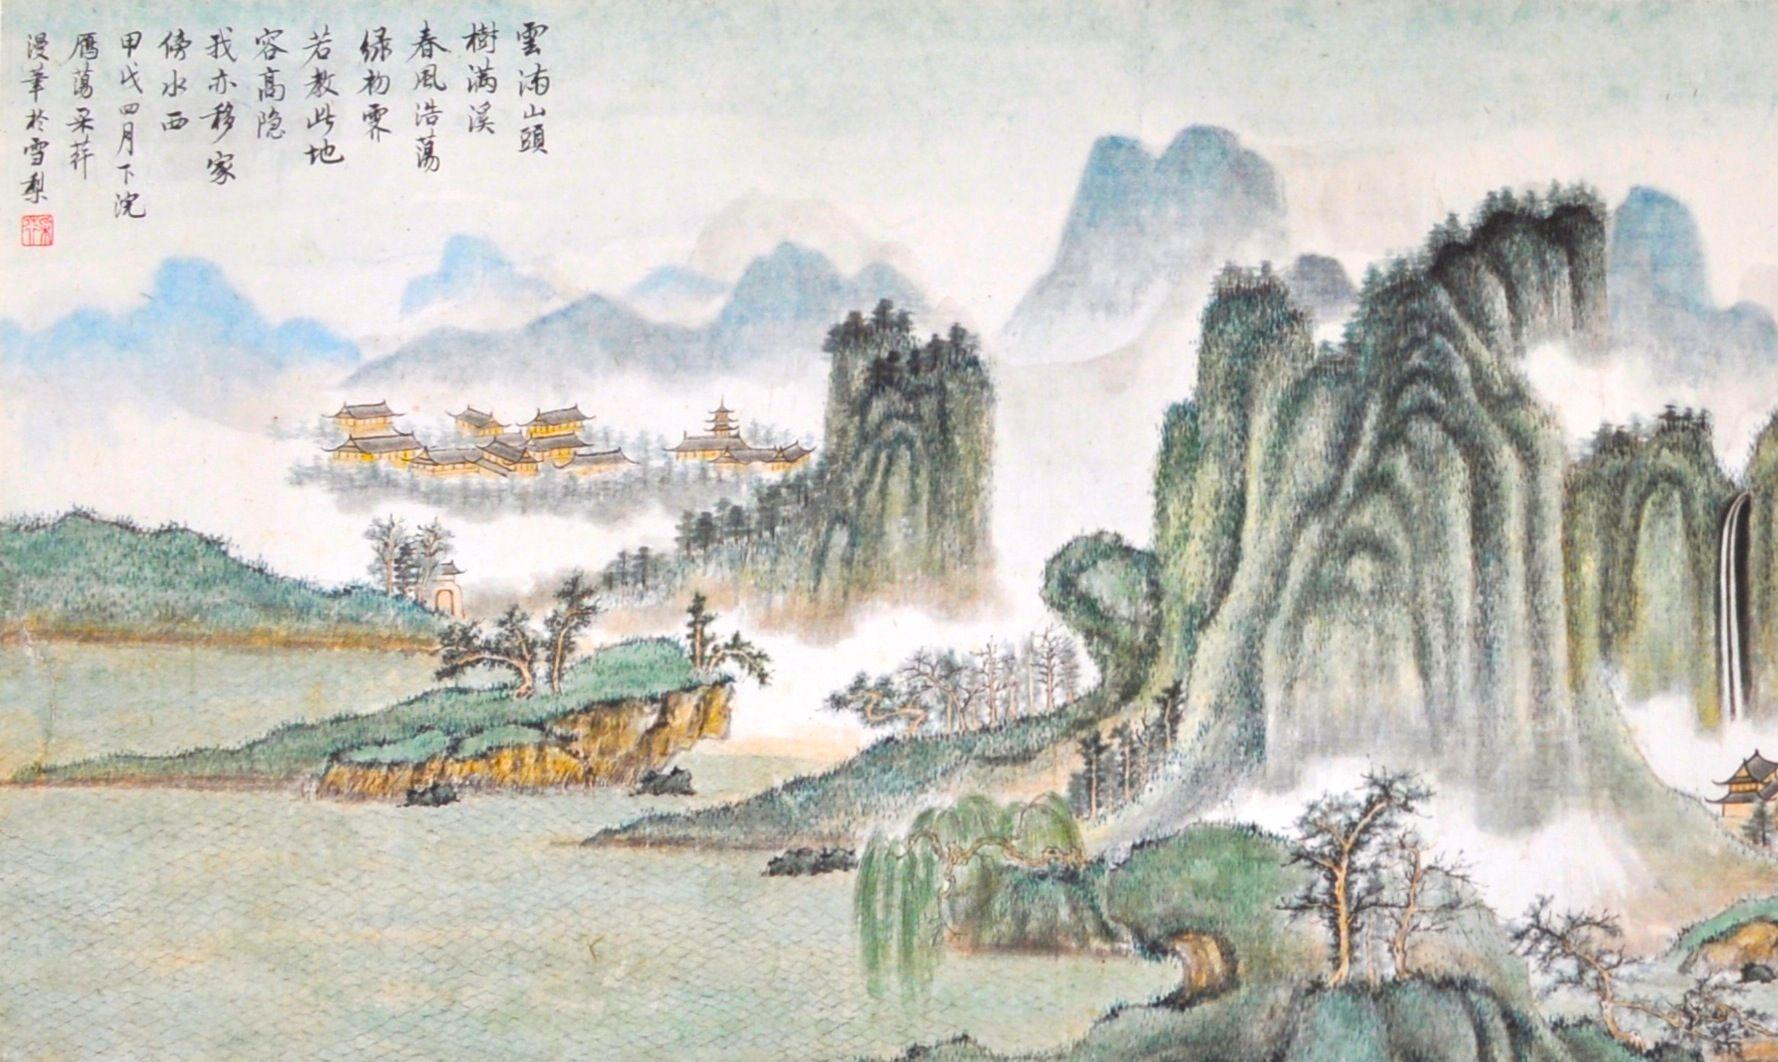 雲沛山頭
樹满溪
春風浩蕩
緑初霁
若教此地
容高隐
我亦移家
傍水西
甲戌四月下浣
雁蕩采
漫筆於雪梨